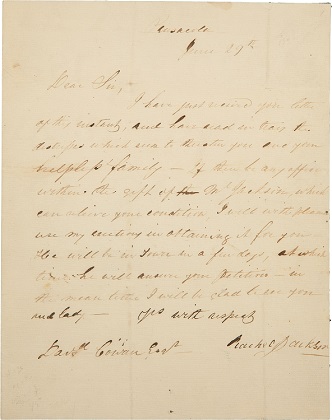 Pensacola
June 29th
Dear Sir,
I have just received your letter
of this instant, and have read in tears the
which seem to threaten you and your
helpless family — If there be any office
within the gift of Dr Jackson, which
can relieve your condition, I will with pleasure
use my in obtaining it for you —
He will be in Town in a few days, at which
time he will answer your petition — in
the mean time I will be glad to see you
and lady — yrs with respect
Cowan Esqr Rachel Jackson